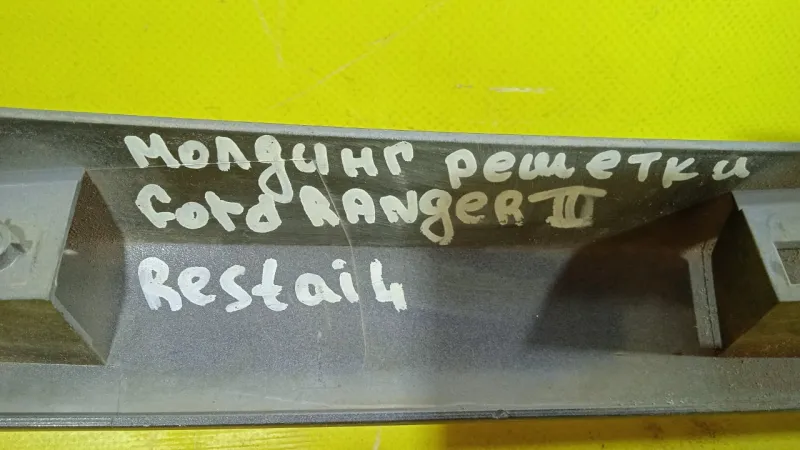 молдинг решетки
Ford RANgeR III
Restai4